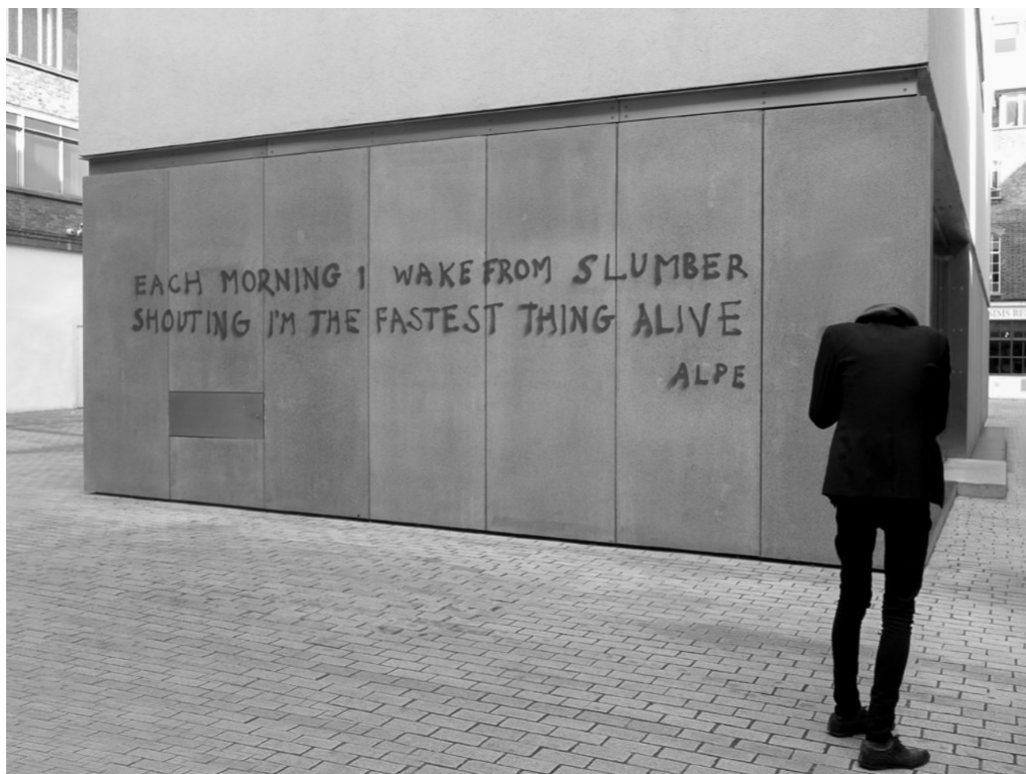 EACH MORNING I WAKE FROM SLUMBER
SHOUTING I'M THE FASTEST THING ALIVE
ALPE